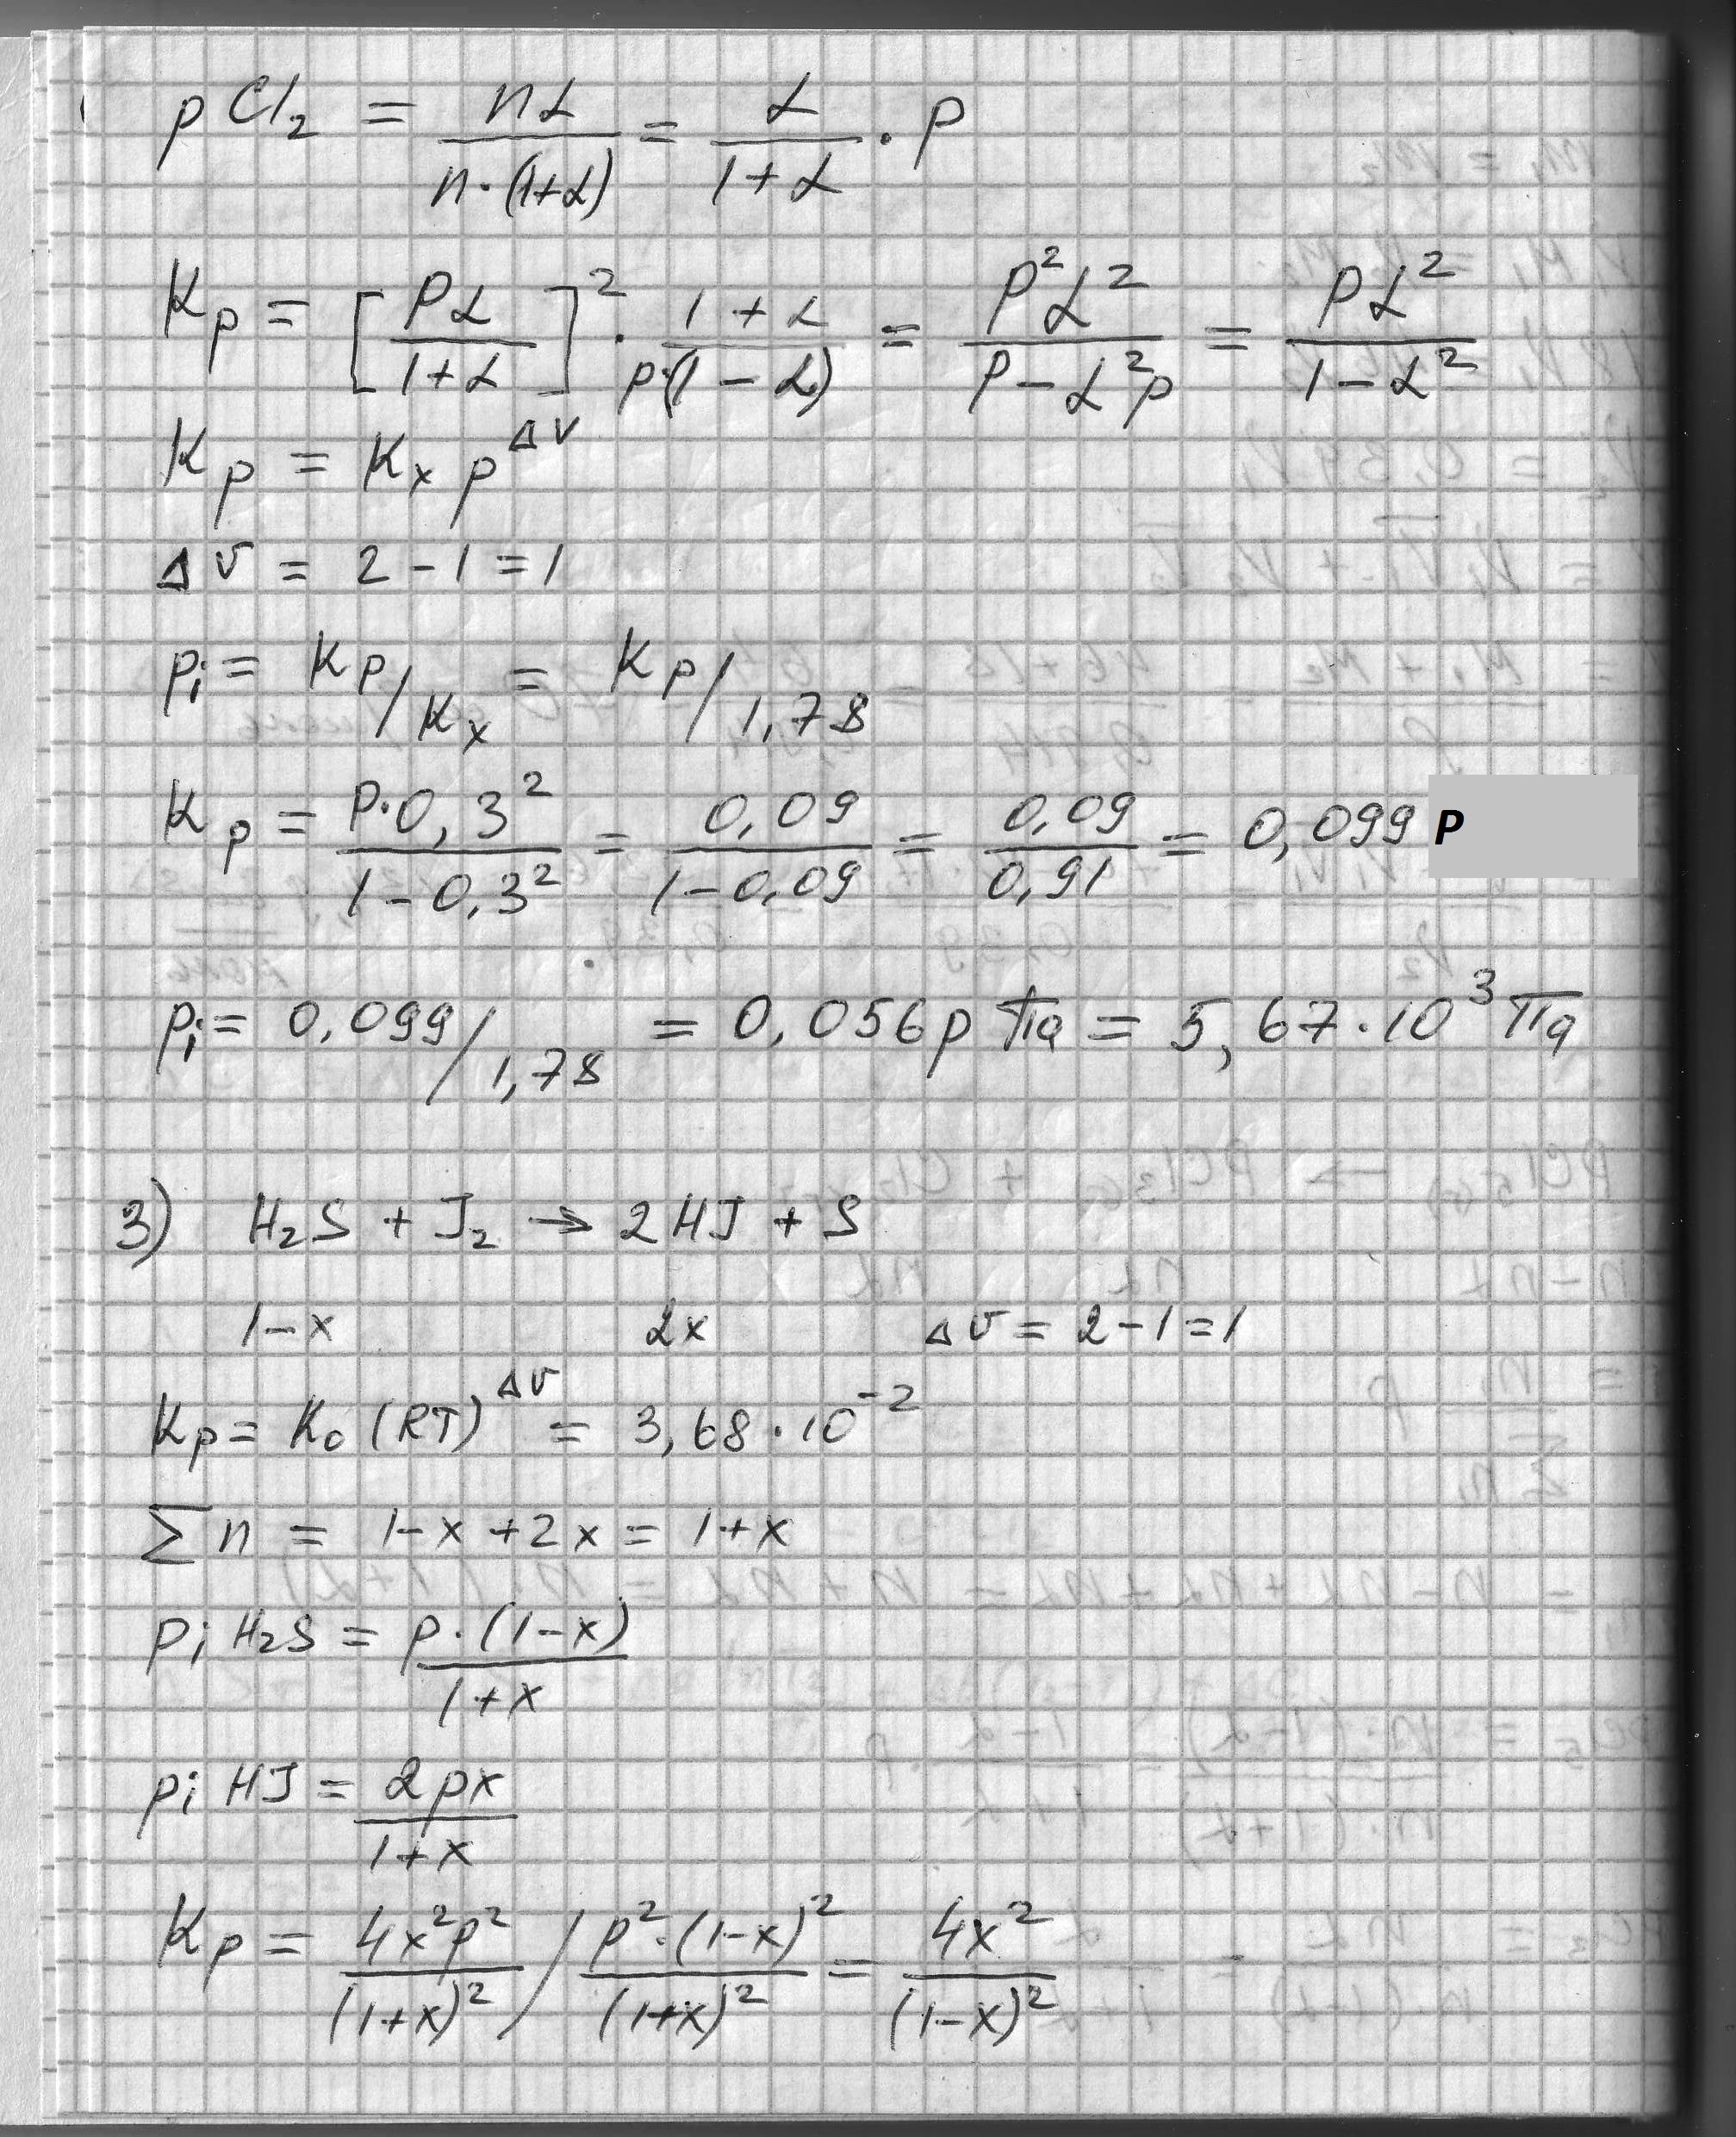 p Cl₂ = nα / n·(1+α) = α / 1+α · p
Kp = [Pα / 1+α]² · 1+α / p·(1-α) = P²α² / P-α²p = Pα² / 1-α²
Kp = Kx p^ΔV
ΔV = 2-1=1
pi = Kp/Kx = Kp/1,78
Kp = P·0,3² / 1-0,3² = 0,09 / 1-0,09 = 0,09 / 0,91 = 0,099 P
pi = 0,099/1,78 = 0,056p Па = 5,67·10³ Па
3) H₂S + J₂ → 2HJ + S
1-x 2x ΔV = 2-1=1
Kp = Kc (RT)^ΔV = 3,68·10⁻²
Σn = 1-x+2x = 1+x
Pi H₂S = p·(1-x) / 1+x
pi HJ = 2px / 1+x
Kp = 4x²p² / (1+x)² / p²·(1-x)² / (1+x)² = 4x² / (1-x)²